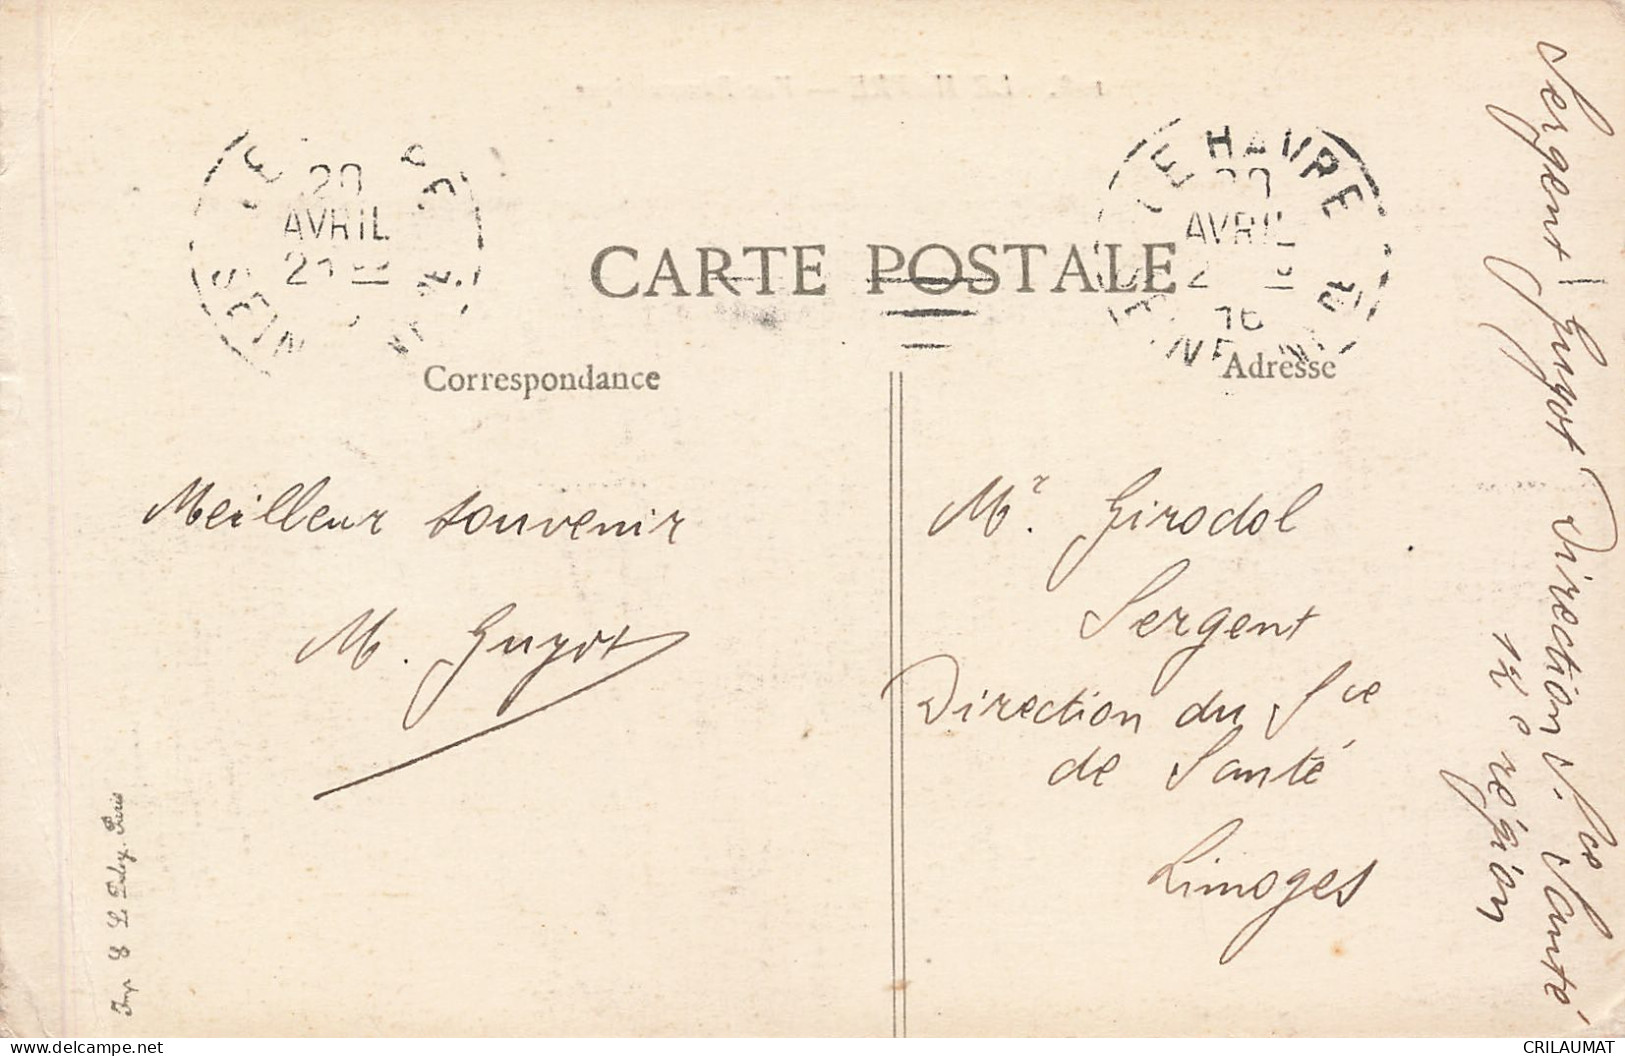 LE HAVRE
20
AVRIL
16
CARTE POSTALE
Correspondance
Adresse
Meilleur souvenir
M. Guyot
Mr. Girodol
Sergent
Direction du Sce
de Santé
Limoges
Sergent Guyot Direction S. Sce Santé
12e région
Imp. E. Le Deley. Paris
delcampe.net
CRILAUMAT